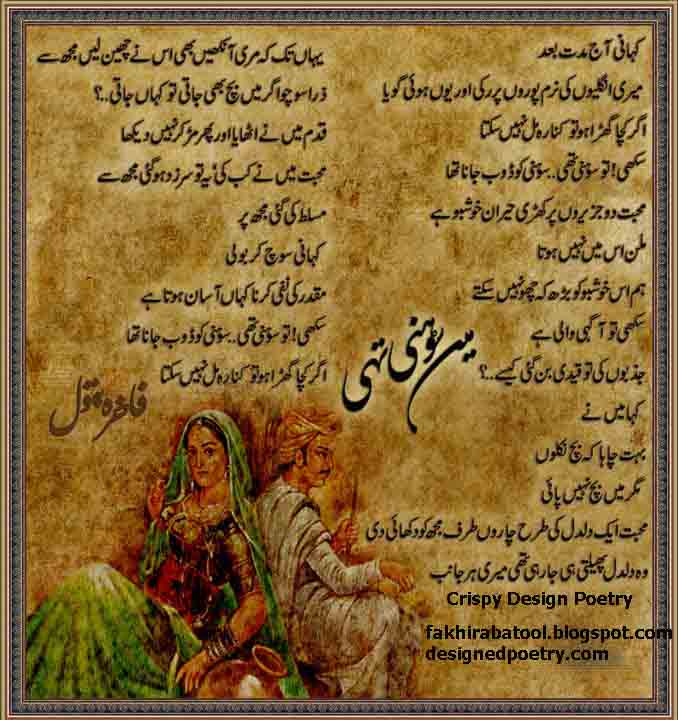 کہانی آج مدت بعد
میری انگلیوں کی نرم پوروں پر رکی اور یوں ہوئی گویا
اگر کچا گھڑا ہو تو کنارہ مل نہیں سکتا
سکھی! تو سوہنی تھی.. سوہنی کو ڈوب جانا تھا
محبت دو جزیروں پر کھڑی حیران خوشبو ہے
ملن اس میں نہیں ہوتا
ہم اس خوشبو کو بڑھ کہ چھو نہیں سکتے
سکھی تو آگہی والی ہے
جذبوں کی تو قیدی بن گئی کیسے..؟
کہا میں نے
بہت چاہا کہ بچ نکلوں
مگر میں بچ نہیں پائی
محبت ایک دلدل کی طرح چاروں طرف مجھ کو دکھائی دی
وہ دلدل پھیلتی ہی جا رہی تھی میری ہر جانب
یہاں تک کہ مری آنکھیں بھی اس نے چھین لیں مجھ سے
ذرا سوچو اگر میں بچ بھی جاتی تو کہاں جاتی..؟
قدم میں نے اٹھایا اور پھر مڑ کر نہیں دیکھا
محبت میں نے کب کی' یہ تو سرزد ہو گئی مجھ سے
مسلط کی گئی مجھ پر
کہانی سوچ کر بولی
مقدر کی نفی کرنا کہاں آسان ہوتا ہے
سکھی! تو سوہنی تھی.. سوہنی کو ڈوب جانا تھا
اگر کچا گھڑا ہو تو کنارہ مل نہیں سکتا
میں سوہنی تھی
فاخرہ بتول
Crispy Design Poetry
fakhirabatool.blogspot.com
designedpoetry.com